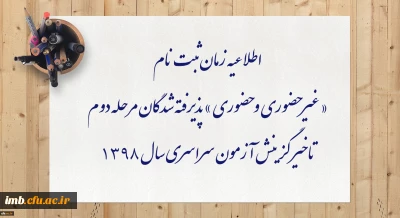 اطلاعیه زمان ثبت نام
«غیرحضوری و حضوری» پذیرفته شدگان مرحله دوم
تاخیر گزینش آزمون سراسری سال ۱۳۹۸
imb.cfu.ac.ir